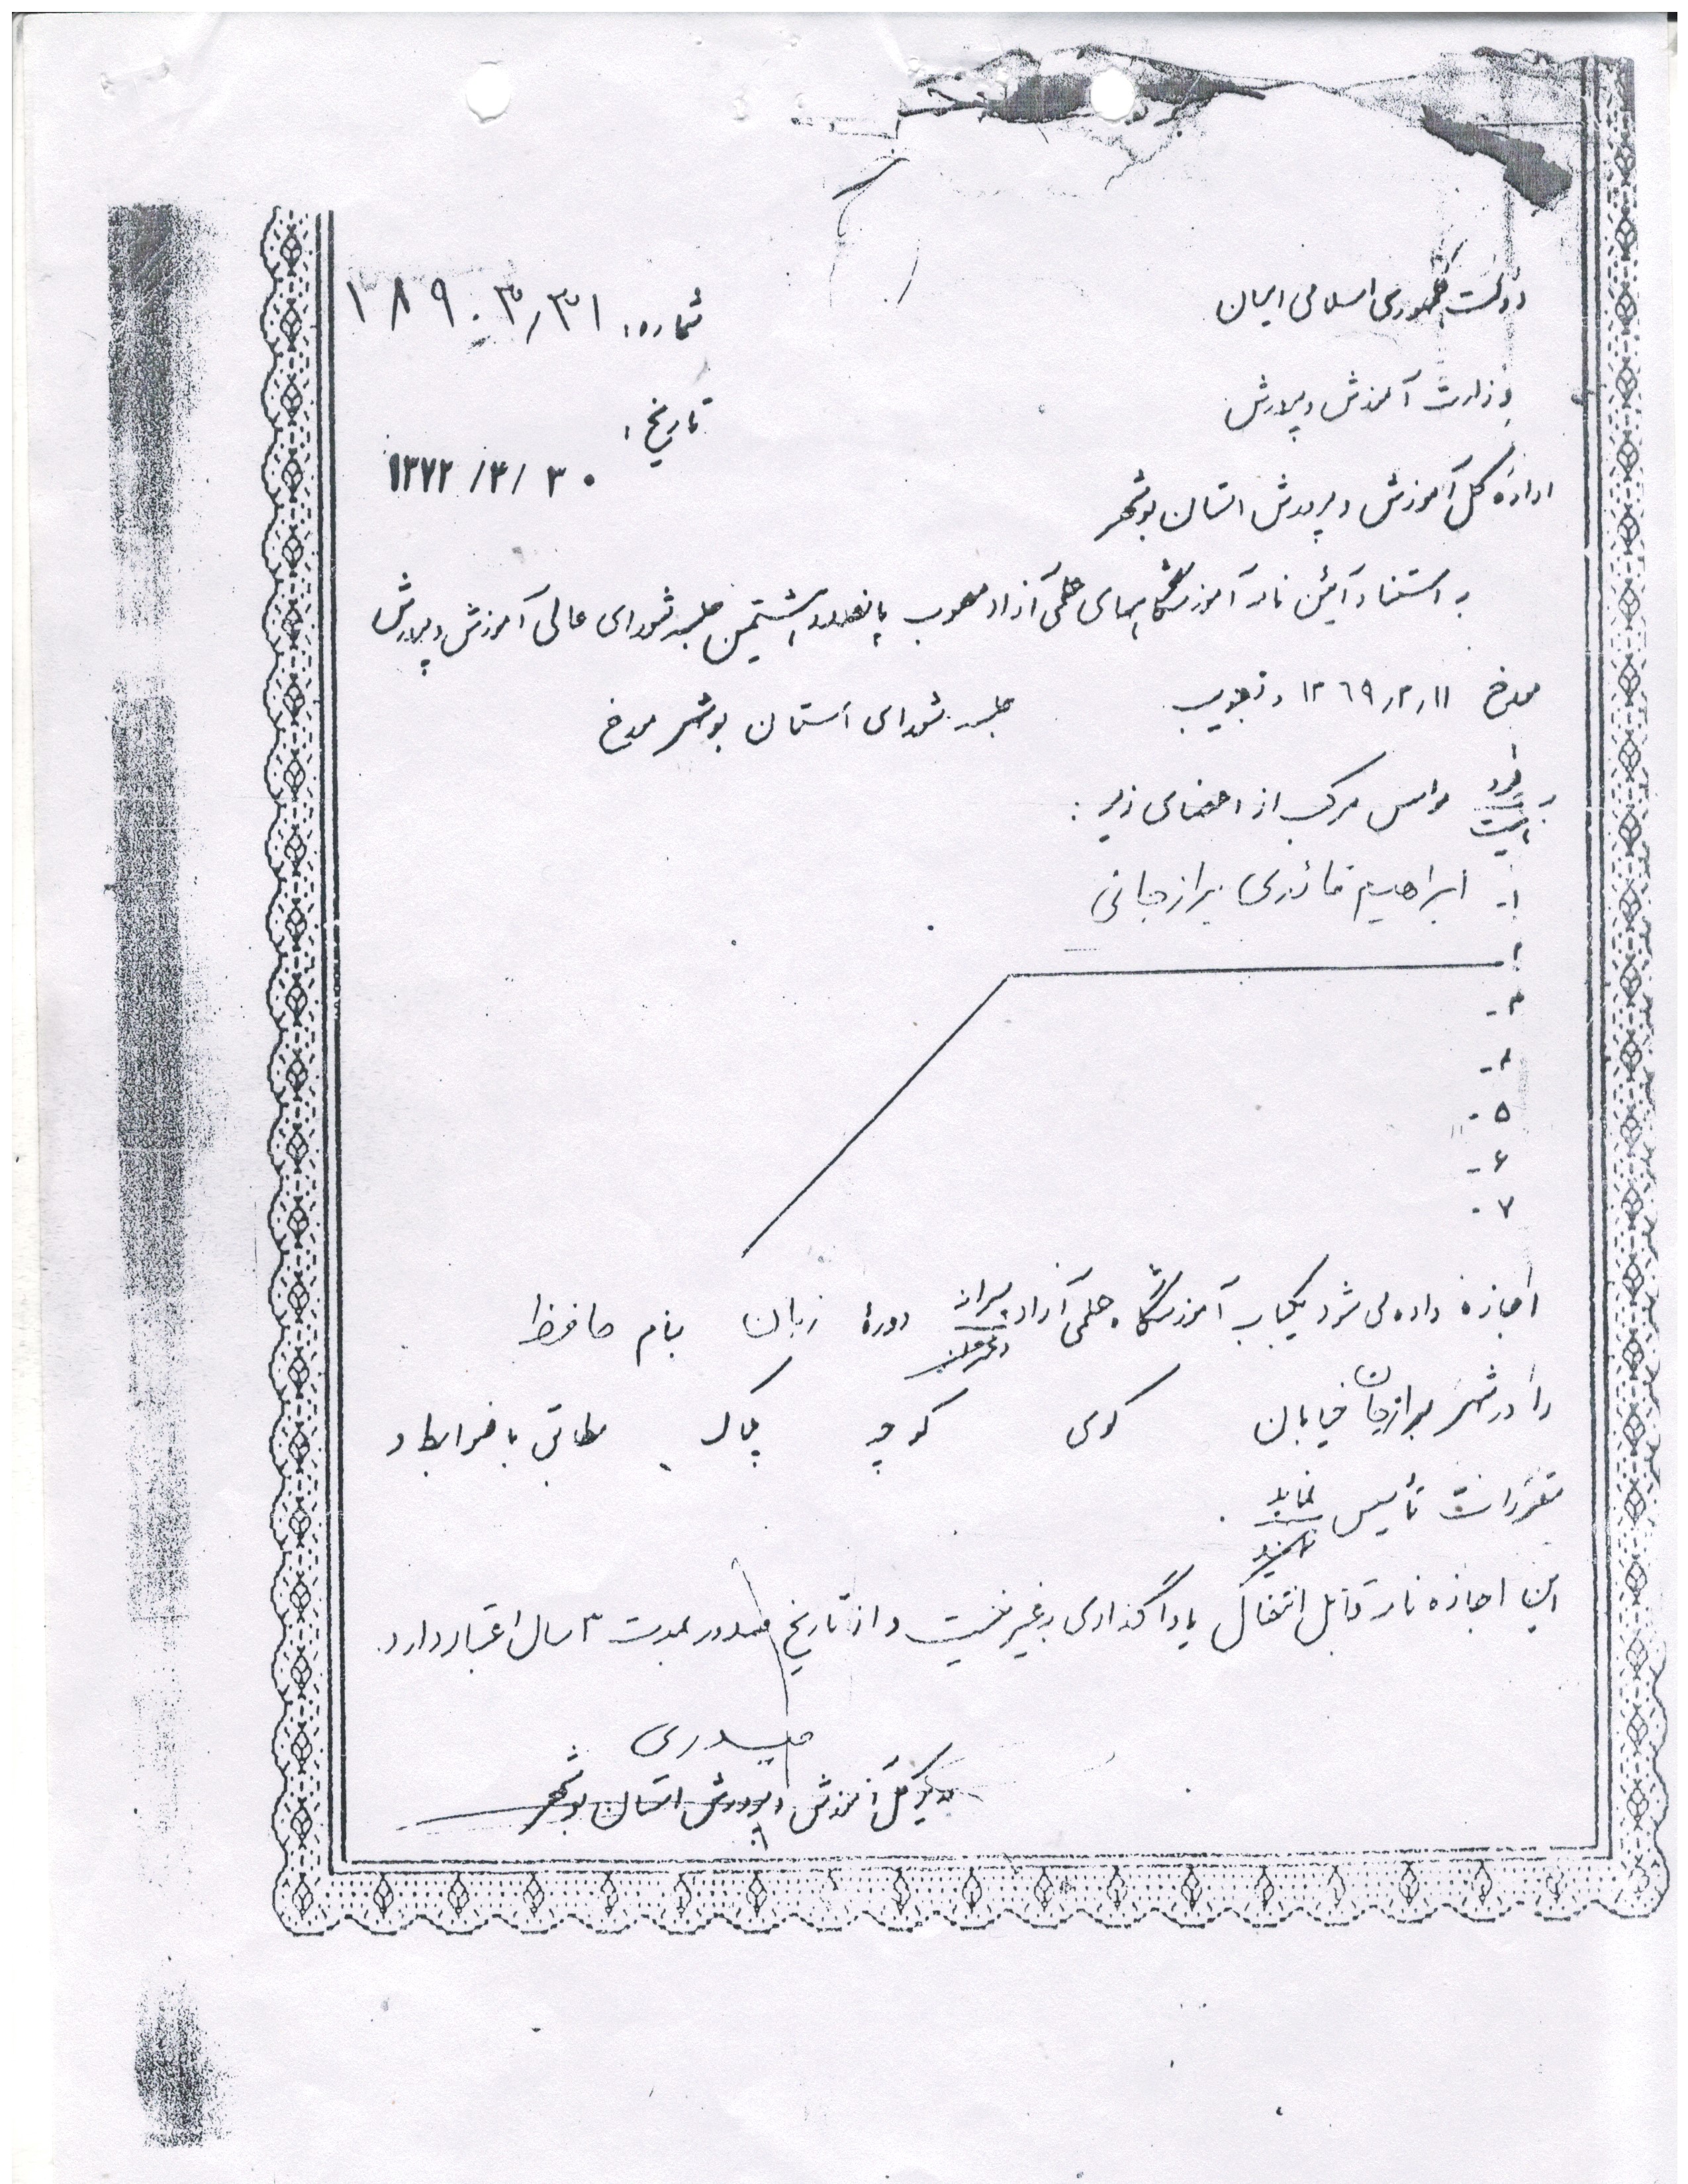 دولت جمهوری اسلامی ایران
شماره: ۱۸۹۰۳/۳۱
وزارت آموزش و پرورش
تاریخ:
۱۳۷۲/۳/۳۰
اداره کل آموزش و پرورش استان بوشهر
به استناد آئین نامه آموزشگاههای علمی آزاد مصوب پانصد و هشتمین جلسه شورای عالی آموزش و پرورش
مورخ ۱۳۶۹/۲/۱۱ و تصویب جلسه شورای استان بوشهر مورخ
به فرد هیئت موسس مرکب از اعضای زیر:
۱- ابراهیم قائدی برازجانی
۲
۳-
۴-
۵-
۶-
۷-
اجازه داده می شود یکباب آموزشگاه علمی آزاد پسرانه دخترانه دورهٔ زبان بنام حافظ
را در شهر برازجان خیابان کوی کوچه پلاک مطابق با ضوابط و
مقررات تأسیس نماید نمایند.
این اجازه نامه قابل انتقال یا واگذاری به غیر نیست و از تاریخ صدور بمدت ۳ سال اعتبار دارد.
حیدری
مدیر کل آموزش و پرورش استان بوشهر